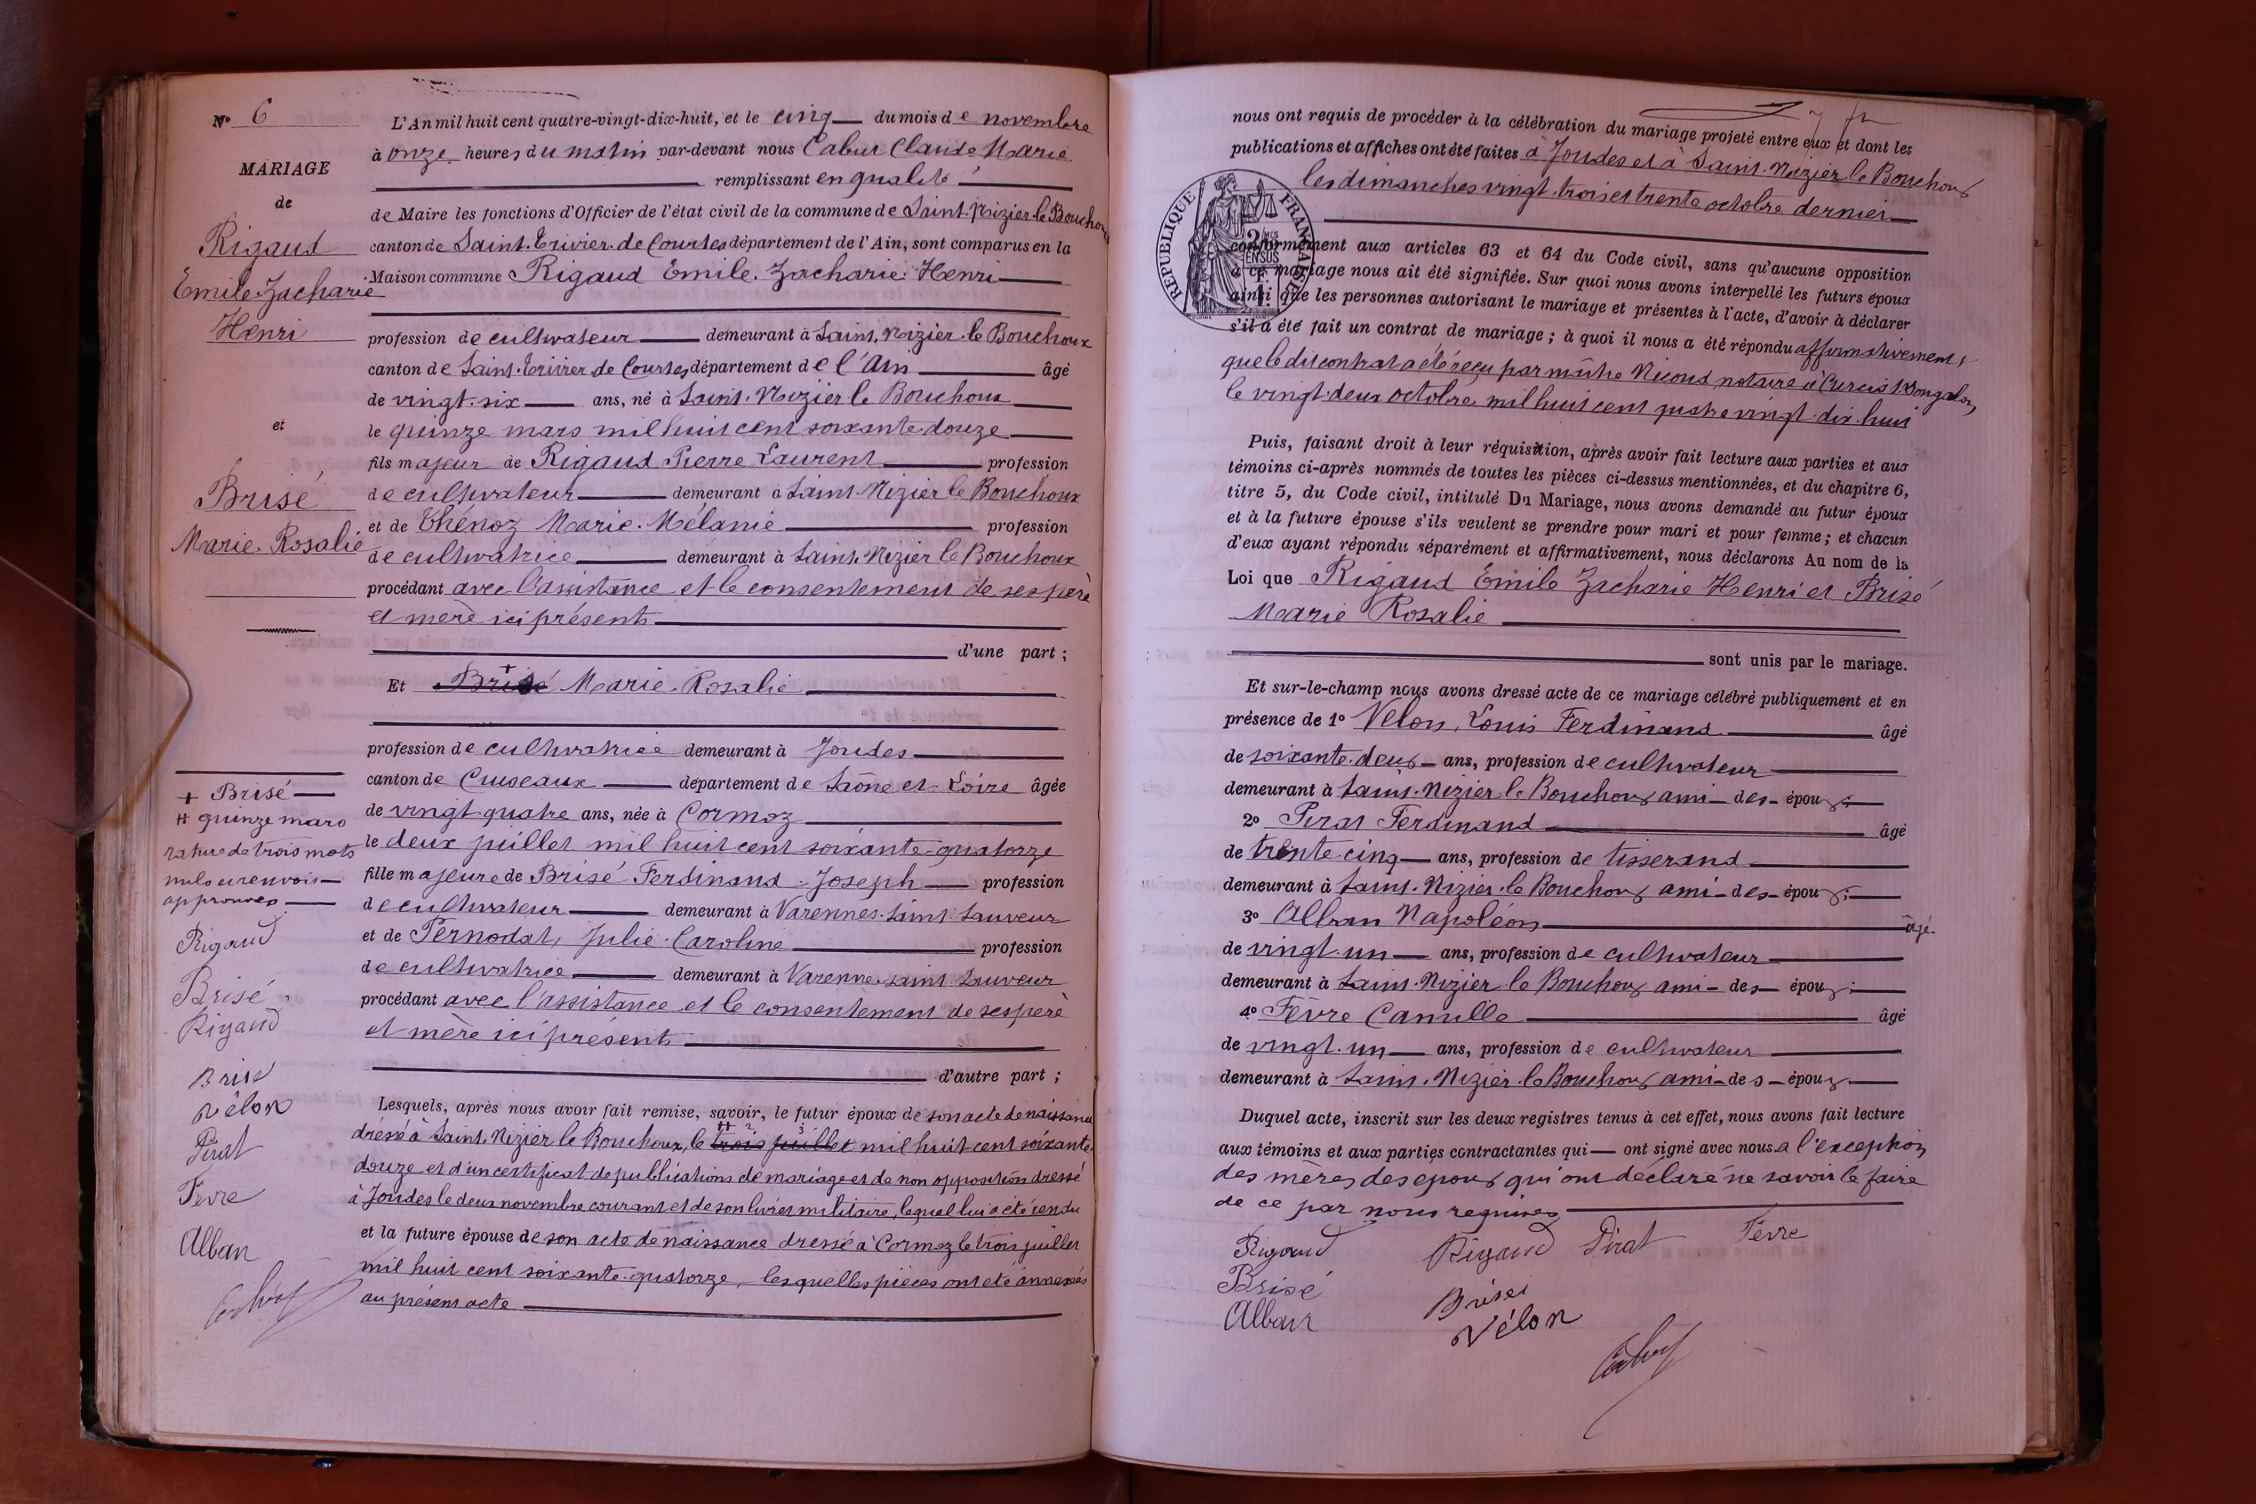 N° 6
MARIAGE
de
Rigaud
Emile Zacharie
Henri
et
Brisé
Marie Rosalie
+ Brisé
++ quinze mars
rature de trois mots
nuls et renvois
approuvés
Rigaud
Brisé
Rigaud
Brisé
Vélon
Pirat
Fèvre
Alban
L'An mil huit cent quatre-vingt-dix-huit, et le cinq du mois de novembre
à onze heures du matin par-devant nous Cabut Claude Marie
remplissant en qualité
de Maire les fonctions d'Officier de l'état civil de la commune de Saint-Nizier-le Bouchoux
canton de Saint-Trivier-de Courtes département de l'Ain, sont comparus en la
Maison commune Rigaud Emile Zacharie Henri
profession de cultivateur demeurant à Saint-Nizier-le Bouchoux
canton de Saint-Trivier de Courtes département de l'Ain âgé
de vingt-six ans, né à Saint-Nizier le Bouchoux
le quinze mars mil huit cent soixante-douze
fils majeur de Rigaud Pierre Laurent profession
de cultivateur demeurant à Saint-Nizier le Bouchoux
et de Thénoz Marie-Mélanie profession
de cultivatrice demeurant à Saint-Nizier le Bouchoux
procédant avec l'assistance et le consentement de ses père
et mère ici présents
d'une part ;
Et Brisé + Marie-Rosalie
profession de cultivatrice demeurant à Joudes
canton de Cuiseaux département de Saône-et-Loire âgée
de vingt-quatre ans, née à Cormoz
le deux juillet mil huit cent soixante-quatorze
fille majeure de Brisé Ferdinand-Joseph profession
de cultivateur demeurant à Varennes-Saint Sauveur
et de Pernodat, Julie-Caroline profession
de cultivatrice demeurant à Varenne saint Sauveur
procédant avec l'assistance et le consentement de ses père
et mère ici présents
d'autre part ;
Lesquels, après nous avoir fait remise, savoir, le futur époux de son acte de naissance
dressé à Saint-Nizier le Bouchoux, le trois juillet mil huit cent soixante
douze et d'un certificat de publications de mariage et de non opposition dressé
à Joudes le deux novembre courant et de son livret militaire, lequel lui a été rendu
et la future épouse de son acte de naissance dressé à Cormoz le trois juillet
mil huit cent soixante-quatorze, lesquelles pièces ont été annexées
au présent acte
nous ont requis de procéder à la célébration du mariage projeté entre eux et dont les
publications et affiches ont été faites à Joudes et à Saint-Nizier le Bouchoux
les dimanches vingt-trois et trente octobre dernier
RÉPUBLIQUE FRANÇAISE
2/10 EN SUS
conformément aux articles 63 et 64 du Code civil, sans qu'aucune opposition
à ce mariage nous ait été signifiée. Sur quoi nous avons interpellé les futurs époux
ainsi que les personnes autorisant le mariage et présentes à l'acte, d'avoir à déclarer
s'il a été fait un contrat de mariage ; à quoi il nous a été répondu affirmativement,
que le dit contrat a été reçu par maître Nicoud notaire à Curciat Dongalon,
le vingt-deux octobre mil huit cent quatre vingt-dix-huit
Puis, faisant droit à leur réquisition, après avoir fait lecture aux parties et aux
témoins ci-après nommés de toutes les pièces ci-dessus mentionnées, et du chapitre 6,
titre 5, du Code civil, intitulé Du Mariage, nous avons demandé au futur époux
et à la future épouse s'ils veulent se prendre pour mari et pour femme ; et chacun
d'eux ayant répondu séparément et affirmativement, nous déclarons Au nom de la
Loi que Rigaud Emile Zacharie Henri et Brisé
Marie Rosalie
sont unis par le mariage.
Et sur-le-champ nous avons dressé acte de ce mariage célébré publiquement et en
présence de 1° Velon, Louis Ferdinand âgé
de soixante-deux ans, profession de cultivateur
demeurant à Saint-Nizier le Bouchoux ami des époux ;
2° Pirat Ferdinand âgé
de trente-cinq ans, profession de tisserand
demeurant à Saint-Nizier-le Bouchoux ami des époux ;
3° Alban Napoléon âgé
de vingt-un ans, profession de cultivateur
demeurant à Saint-Nizier le Bouchoux ami des époux ;
4° Fèvre Camille âgé
de vingt-un ans, profession de cultivateur
demeurant à Saint-Nizier-le Bouchoux ami des époux
Duquel acte, inscrit sur les deux registres tenus à cet effet, nous avons fait lecture
aux témoins et aux parties contractantes qui ont signé avec nous a l'exception
des mères des époux qui ont déclaré ne savoir le faire
de ce par nous requises
Rigaud Rigaud Pirat Fèvre
Brisé Brisé
Alban Vélon